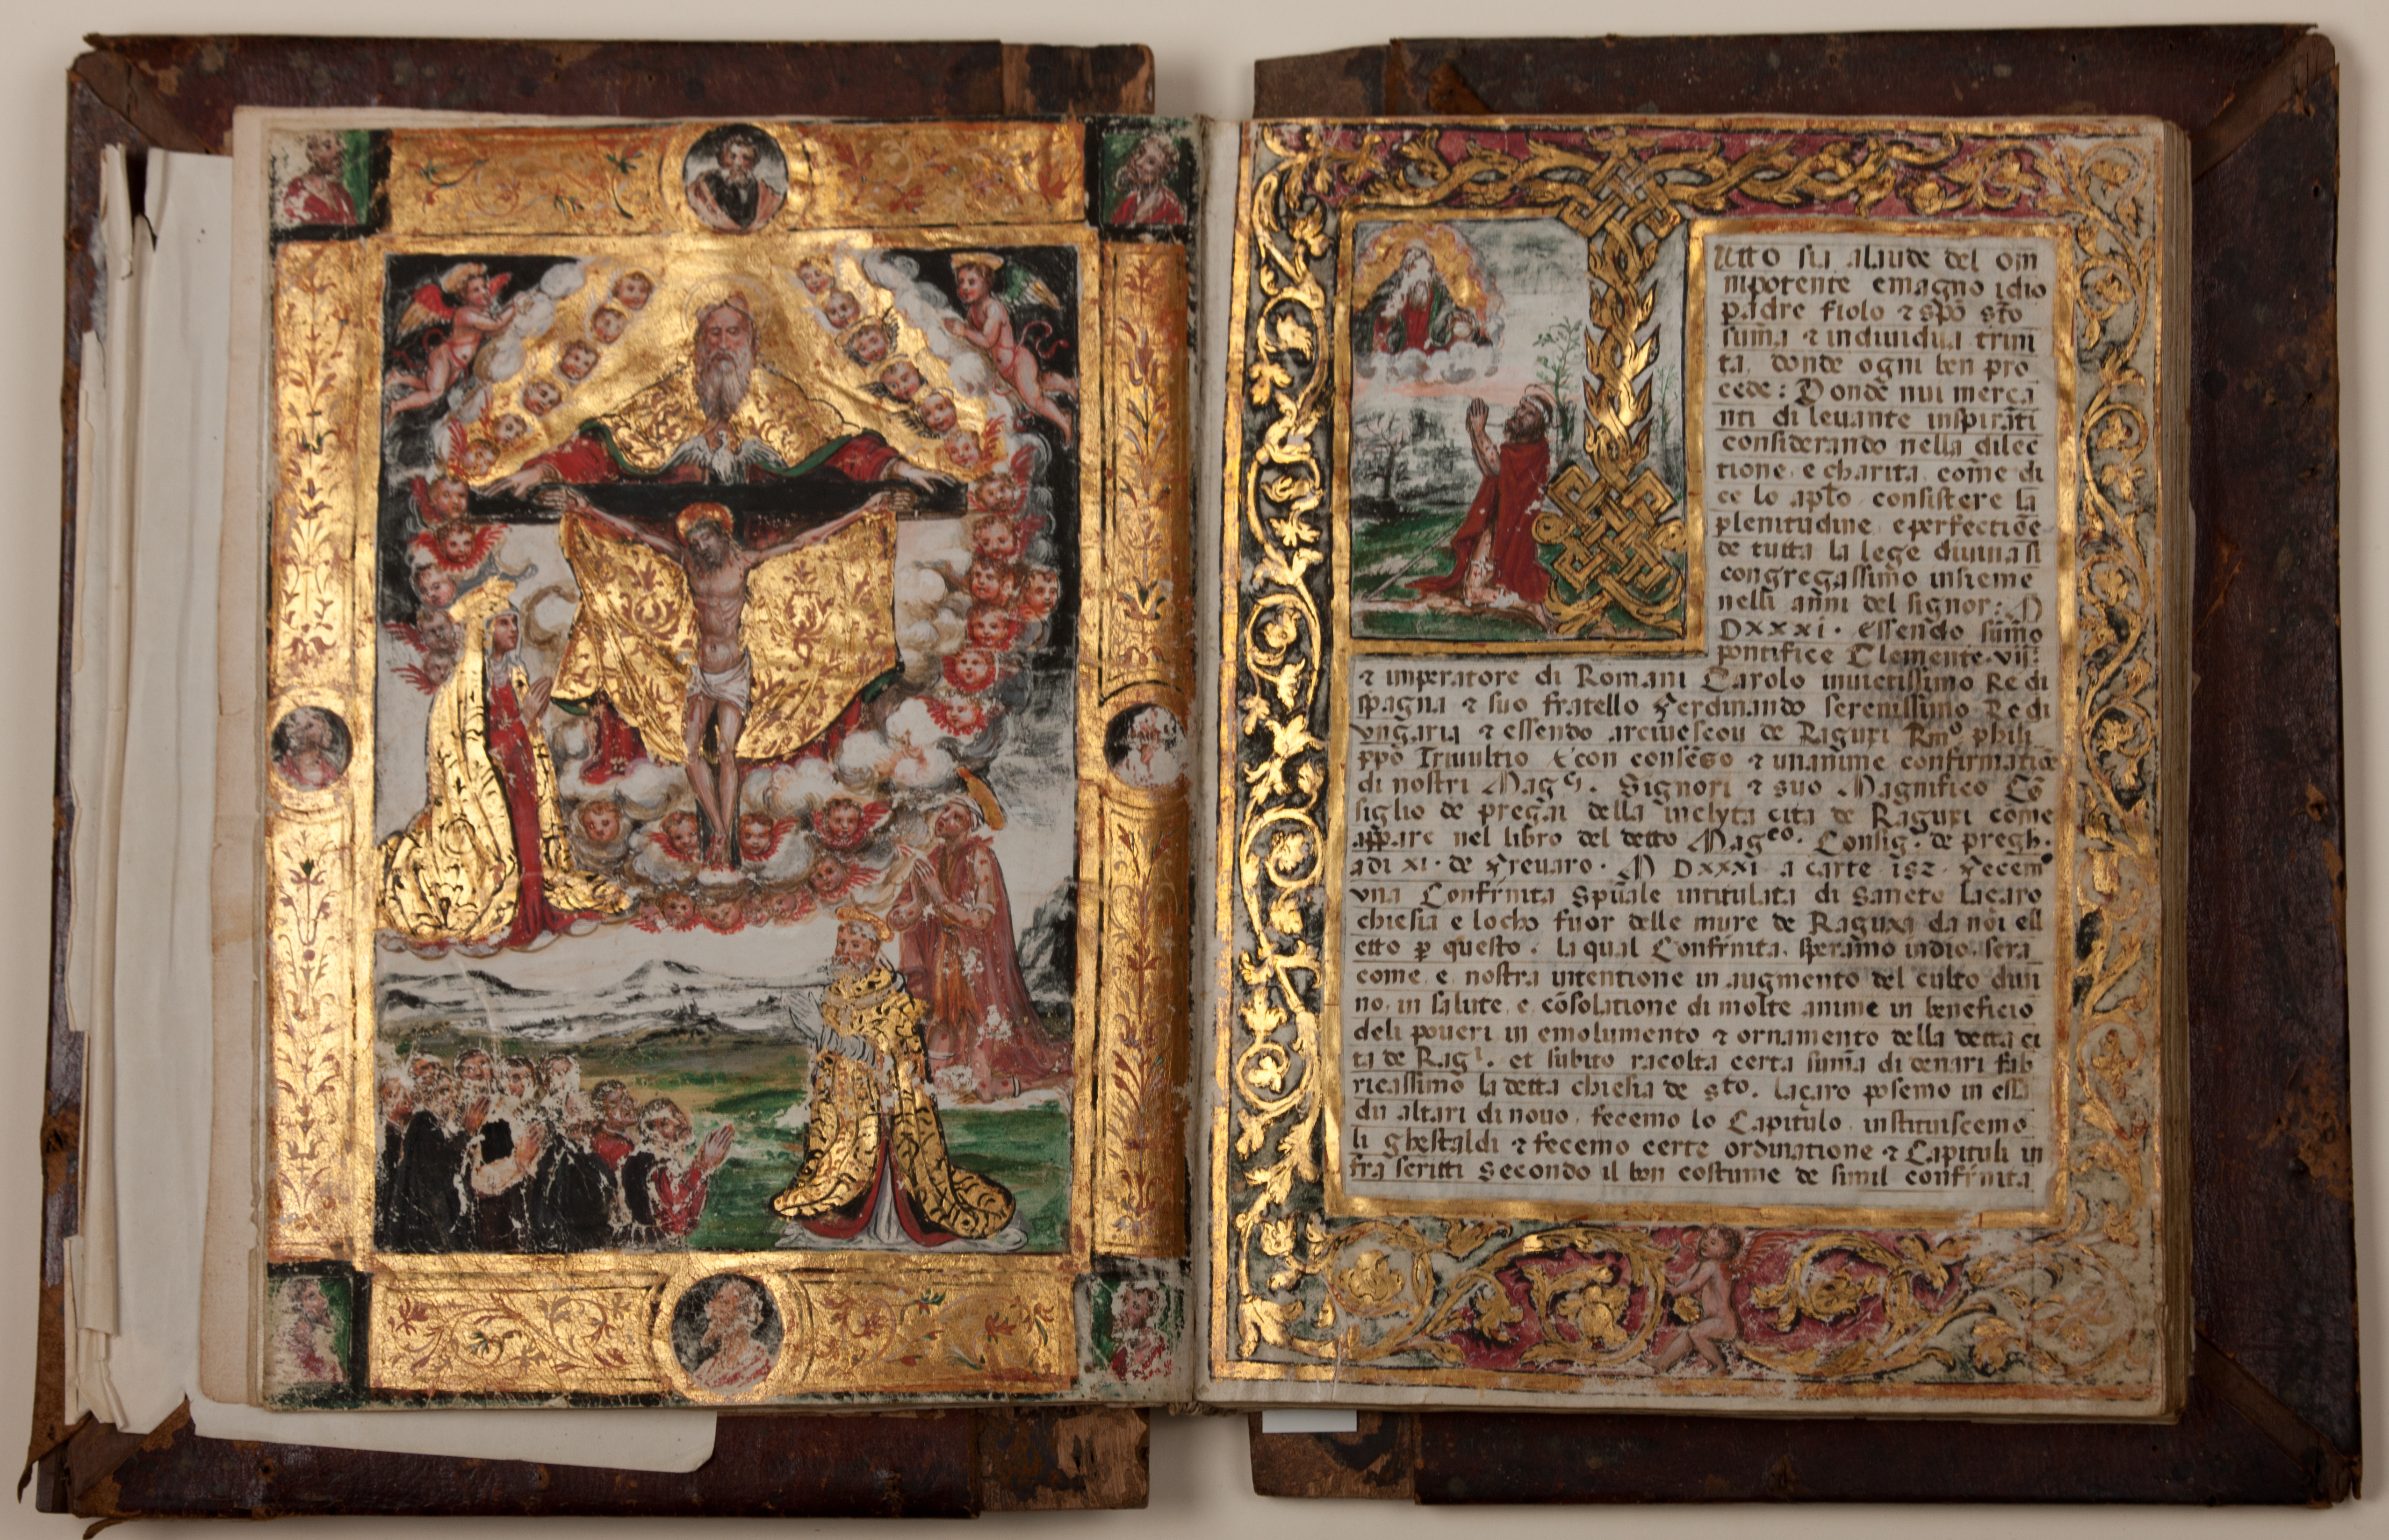 utto sia alaude del om
nipotente emagno idio
padre fiolo ⁊ spõ stõ
suma ⁊ indiuidua trini
ta. donde ogni ben pro
cede: Donde nui merca
nti di leuante inspirati
considerando nella dilec
tione e charita, come di
ce lo aplõ consistere la
plenitudine eperfectiõe
de tutta la lege diuina si
congregassimo insieme
nelli anni del signor: M
DXXXI. essendo sumo
pontifice Clemente. vii.
⁊ imperatore di Romani Carolo inuictissimo Re di
spagna ⁊ suo fratello Ferdinando serenissimo Re di
vngaria ⁊ essendo arciuescou de Raguxi Rmo phili
ppo Triuultio ⁊ con consẽso ⁊ unanime confirmatiõe
di nostri Magci. Signori ⁊ suo Magnifico Cõ
siglio de pregai della inclyta cita de Raguxi come
appare nel libro del detto Magco. Consigo de pregh.
adi XI. de Freuaro. M DXXXI a carte 182. Fecemo
vna Confrnita Spũale intitulata di Sancto Lacaro
chiesia e locho fuor delle mure de Raguxa da noi ell
etto p questo. la qual Confrnita. speramo indio. sera
come e nostra intentione in augmento del culto diui
no, in salute e cõsolatione di molte anime in beneficio
deli poueri in emolumento ⁊ ornamento della detta ci
ta de Ragi. et subito racolta certa suma di denari fab
ricassimo la detta chiesia de sto. laçaro posemo in essa
du altari di nouo, fecemo lo Capitulo instituiscemo
li ghestaldi ⁊ fecemo certe ordinatione ⁊ Capituli in
fra scritti secondo il bon costume de simil confrnita